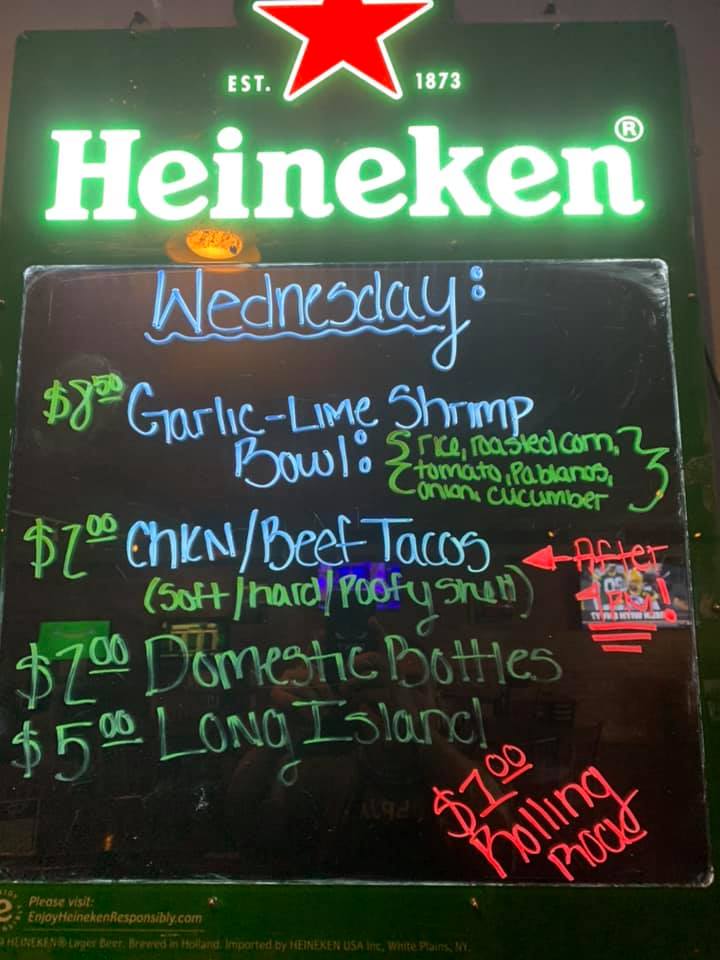 EST. 1873
Heineken®
Wednesday:
$8.50 Garlic-Lime Shrimp
Bowl: {rice, roasted corn,
tomato, Pablanos,
onion, cucumber}
$2.00 CHKN/Beef Tacos
(Soft/hard/Poofy Shell)
After
4PM!
$2.00 Domestic Bottles
$5.00 Long Island
$1.00
Rolling
Rock
Please visit:
EnjoyHeinekenResponsibly.com
HEINEKEN® Lager Beer. Brewed in Holland. Imported by HEINEKEN USA Inc, White Plains, NY.